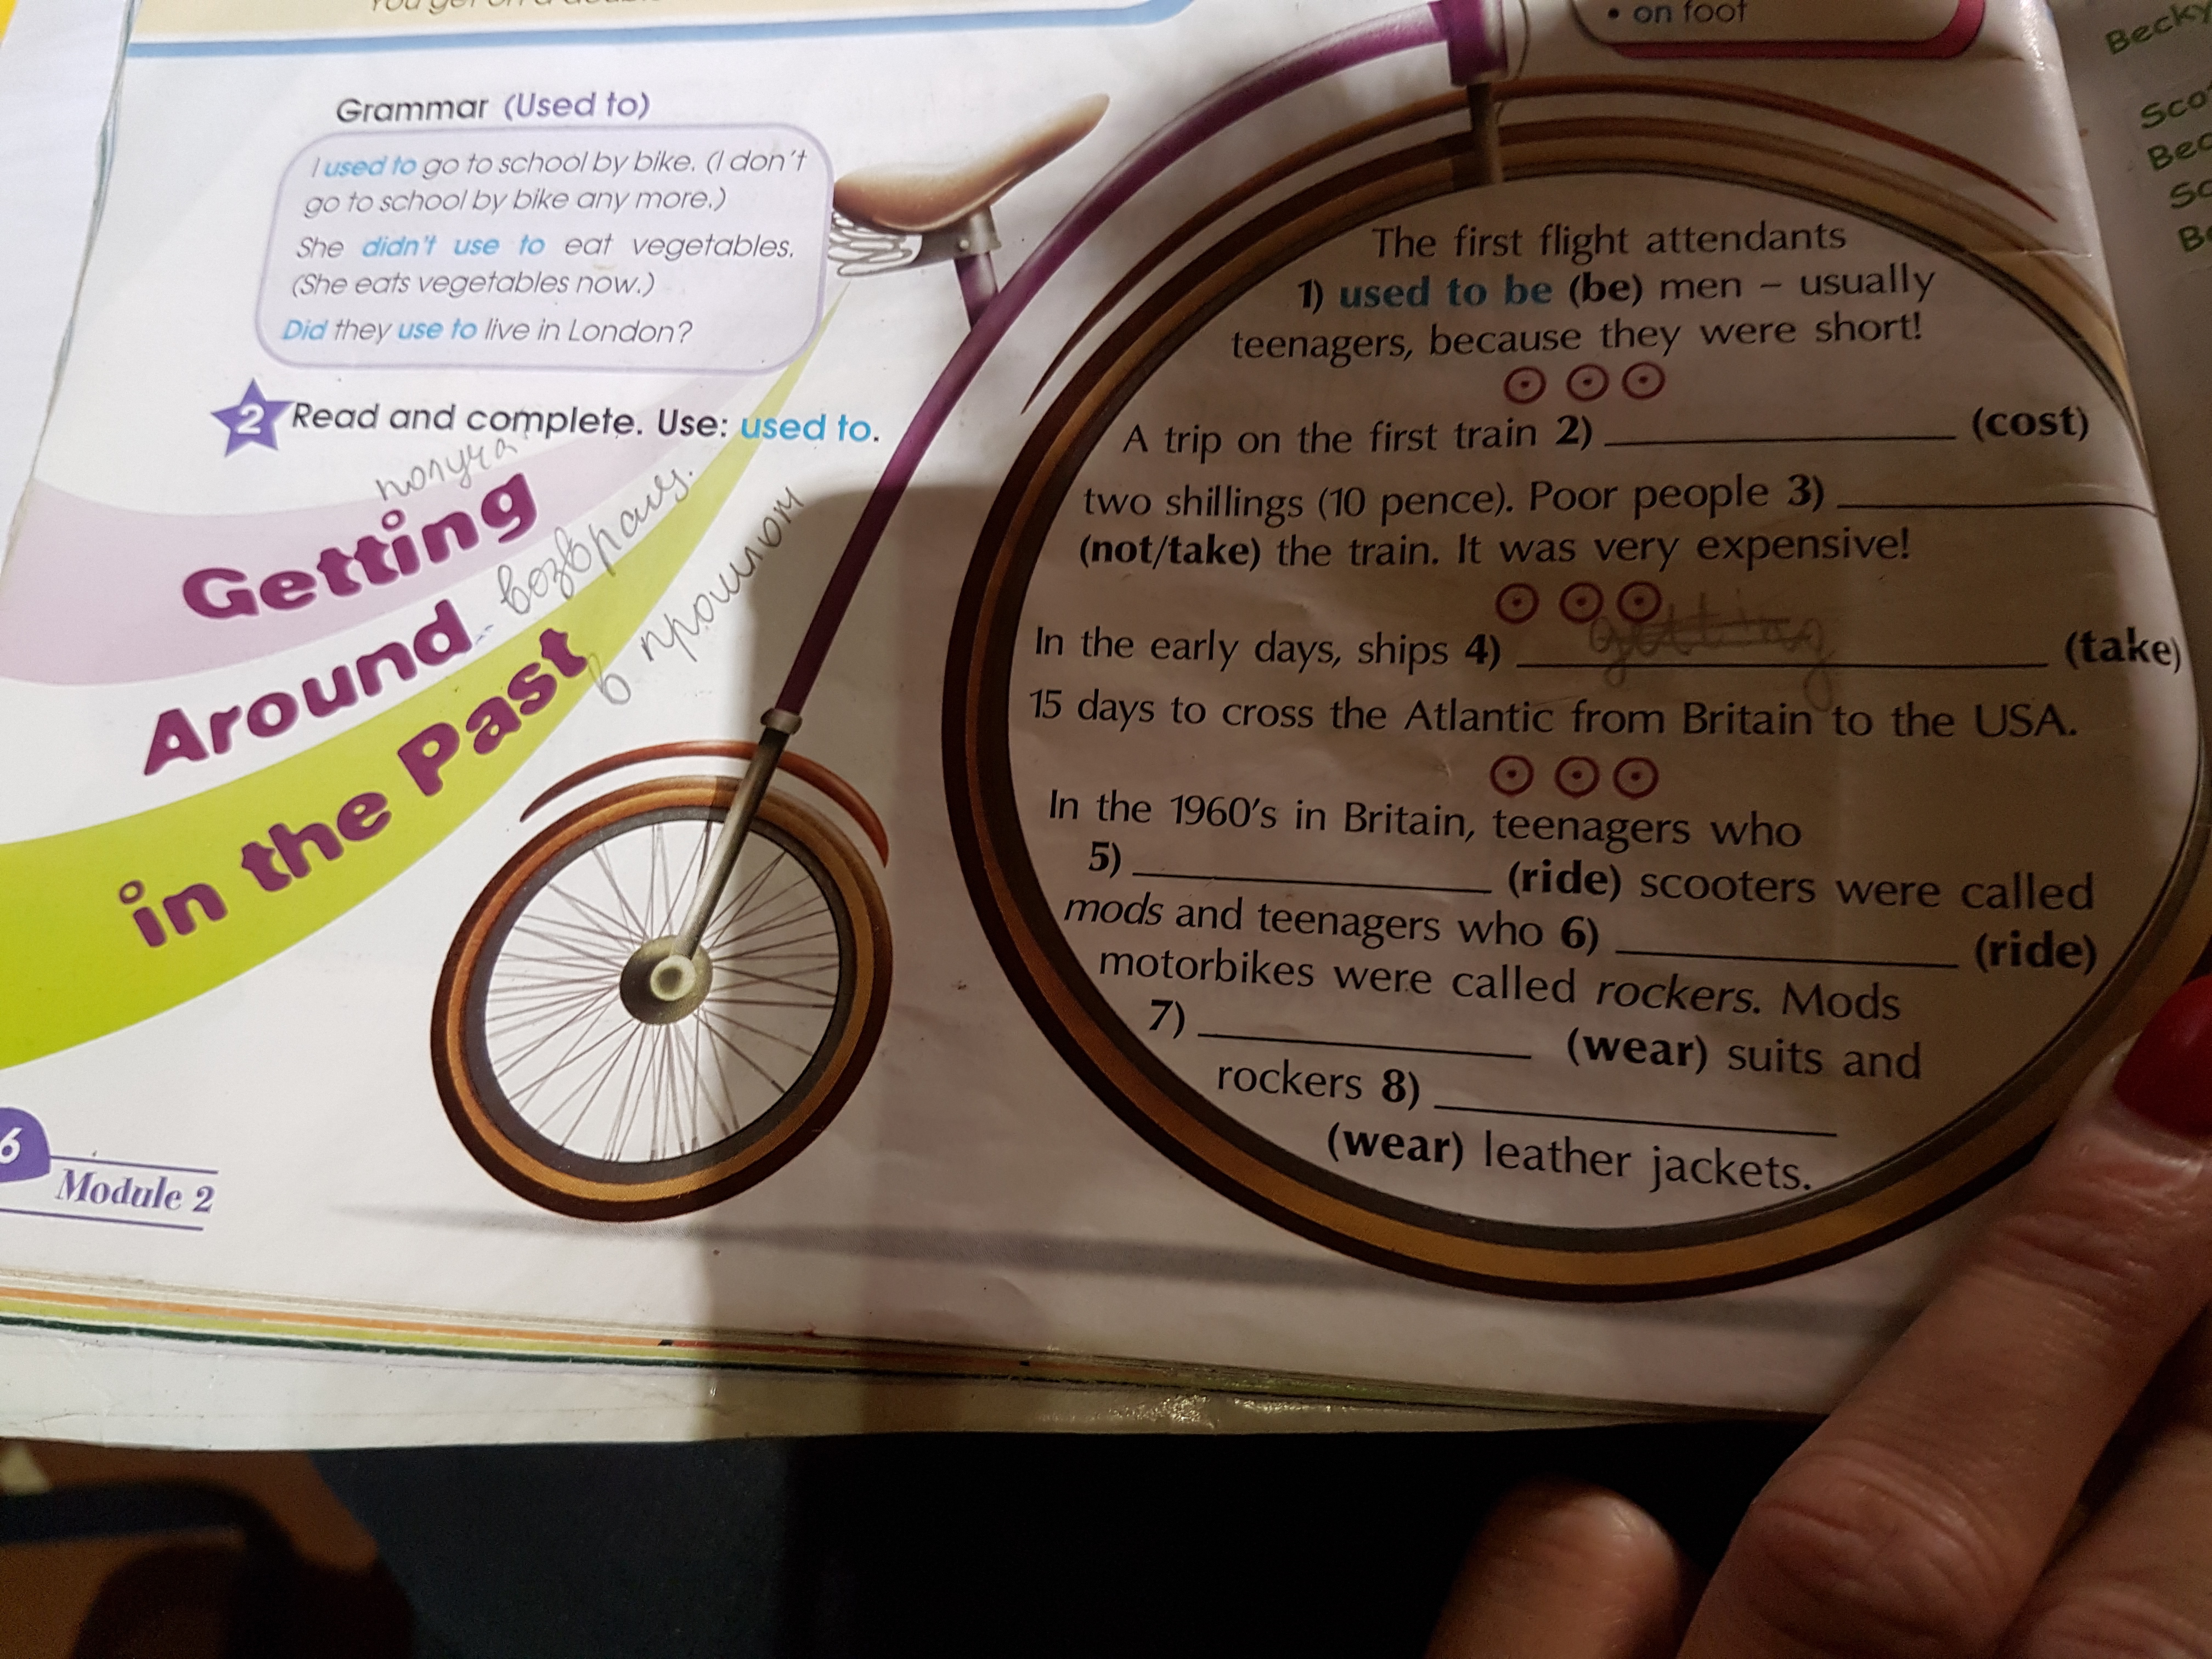 You get on a
• on foot
Becky
Grammar (Used to)
I used to go to school by bike. (I don't
go to school by bike any more.)
She didn't use to eat vegetables.
(She eats vegetables now.)
Did they use to live in London?
2 Read and complete. Use: used to.
получа
Getting
Around - возвращ.
in the Past в прошлом
The first flight attendants
1) used to be (be) men – usually
teenagers, because they were short!
A trip on the first train 2) ____________ (cost)
two shillings (10 pence). Poor people 3) ____________
(not/take) the train. It was very expensive!
getting
In the early days, ships 4) ____________ (take)
15 days to cross the Atlantic from Britain to the USA.
In the 1960's in Britain, teenagers who
5) ____________ (ride) scooters were called
mods and teenagers who 6) ____________ (ride)
motorbikes were called rockers. Mods
7) ____________ (wear) suits and
rockers 8) ____________
(wear) leather jackets.
6
Module 2